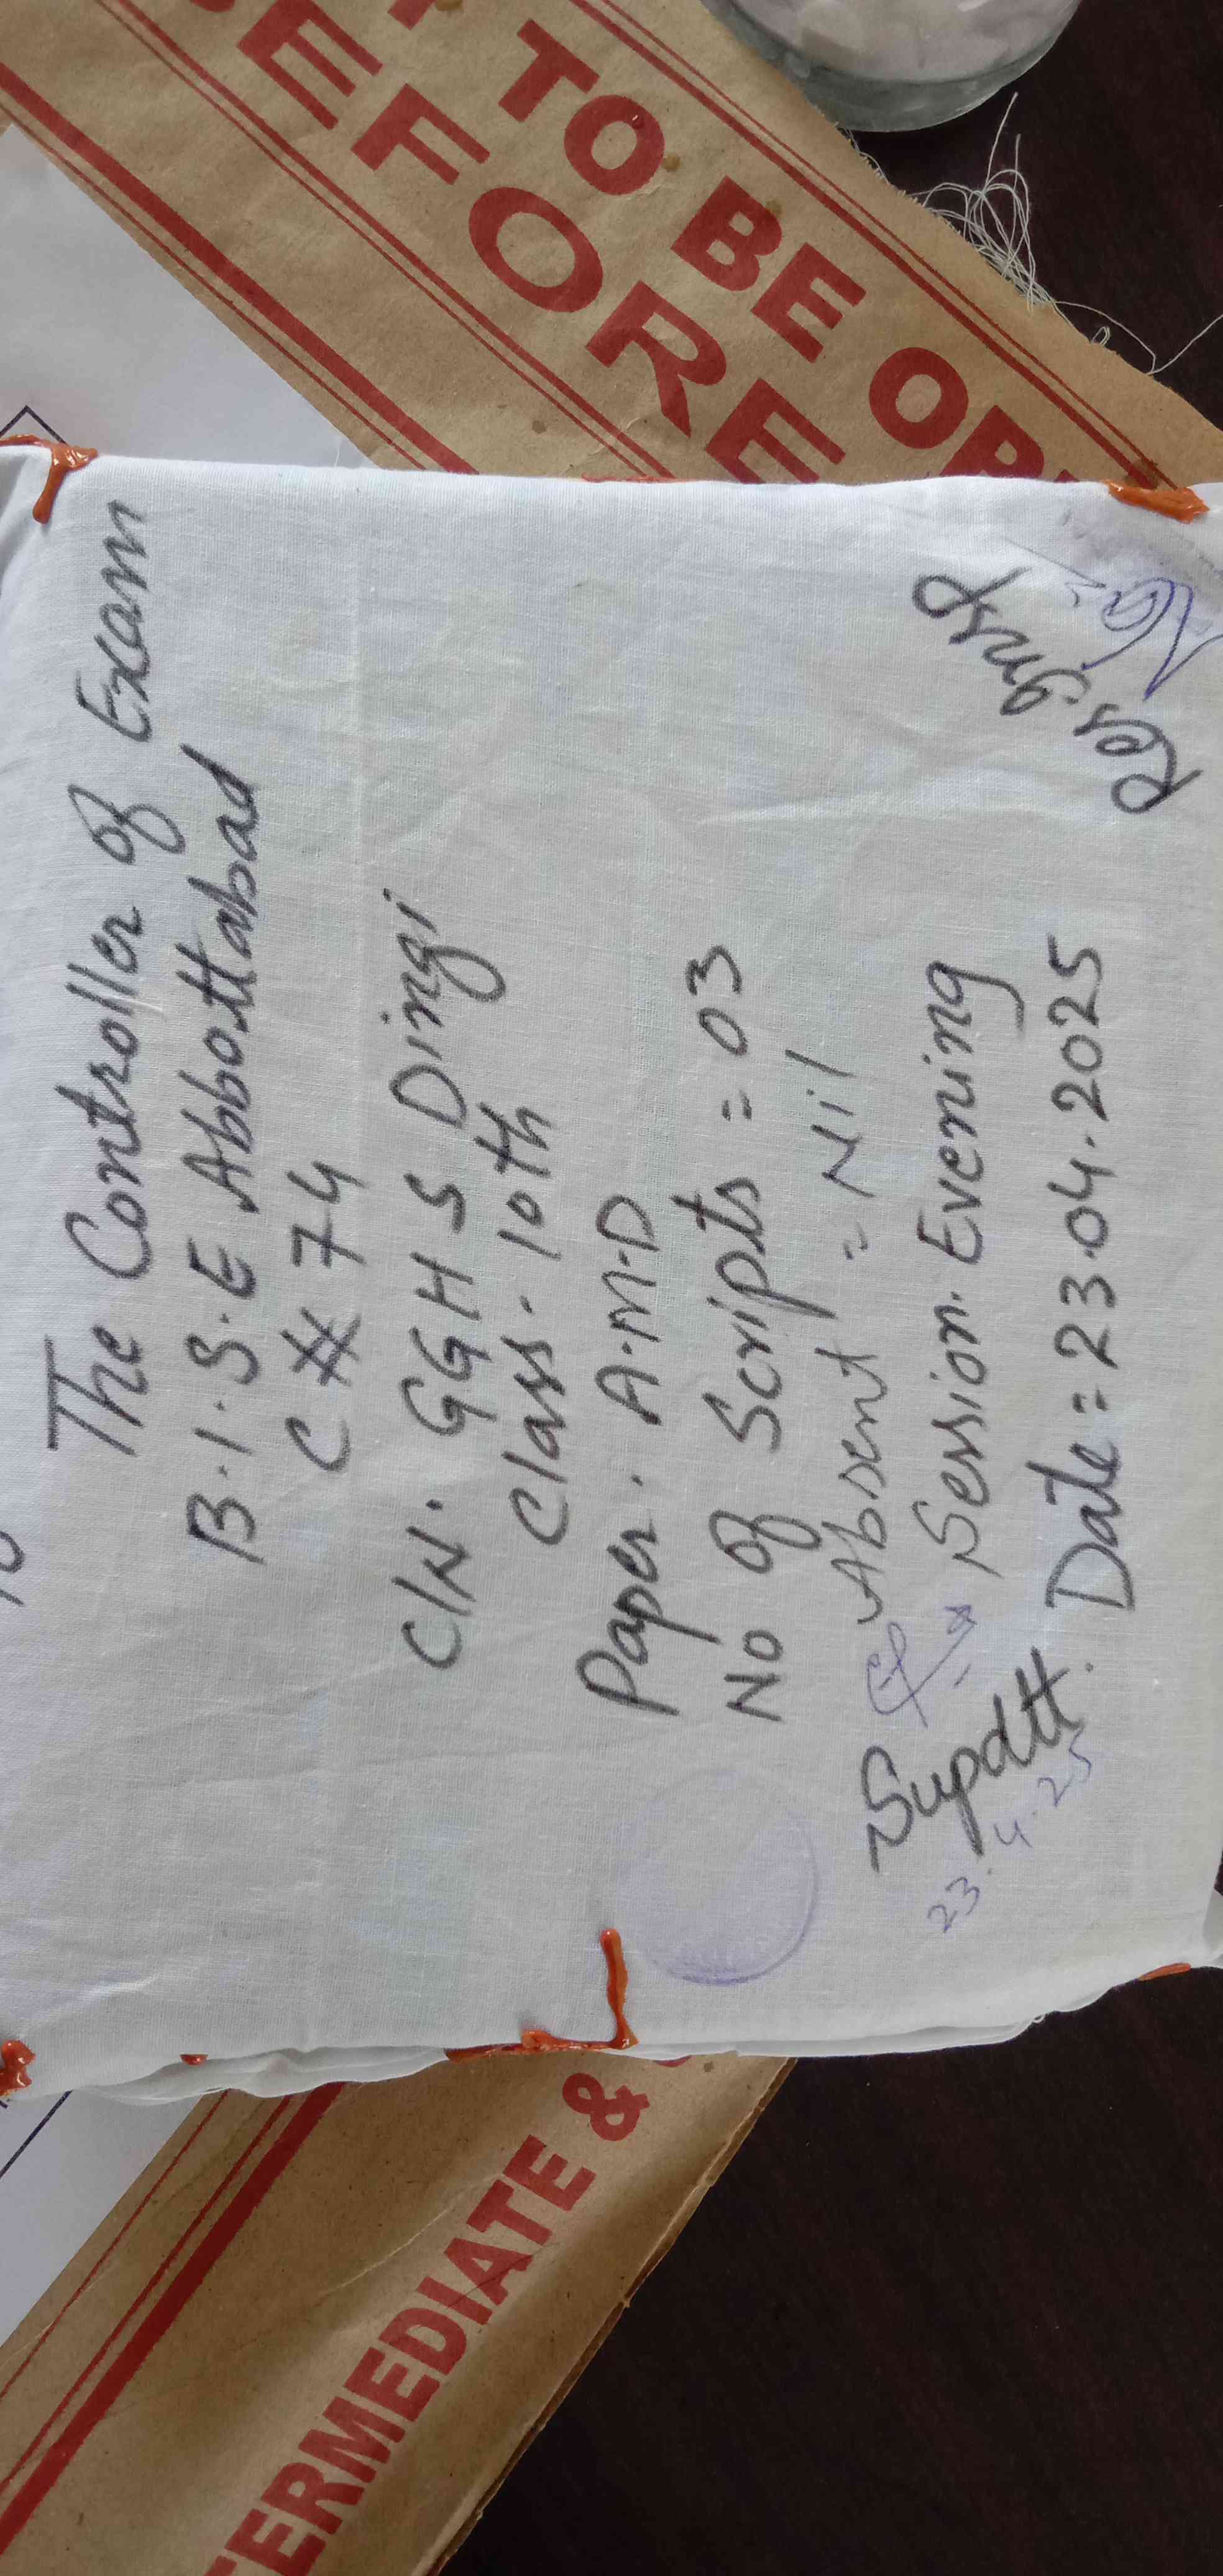 To
The Controller of Exam
B.I.S.E Abbottabad
C # 74
C/N. GGHS Dingi
Class. 10th
Paper. A.M.D
No of Scripts = 03
Absent = Nil
Session. Evening
Date = 23.04.2025
Supdtt.
23.4.25
Res. Insp
TO BE OP
BEFORE
TERMEDIATE &